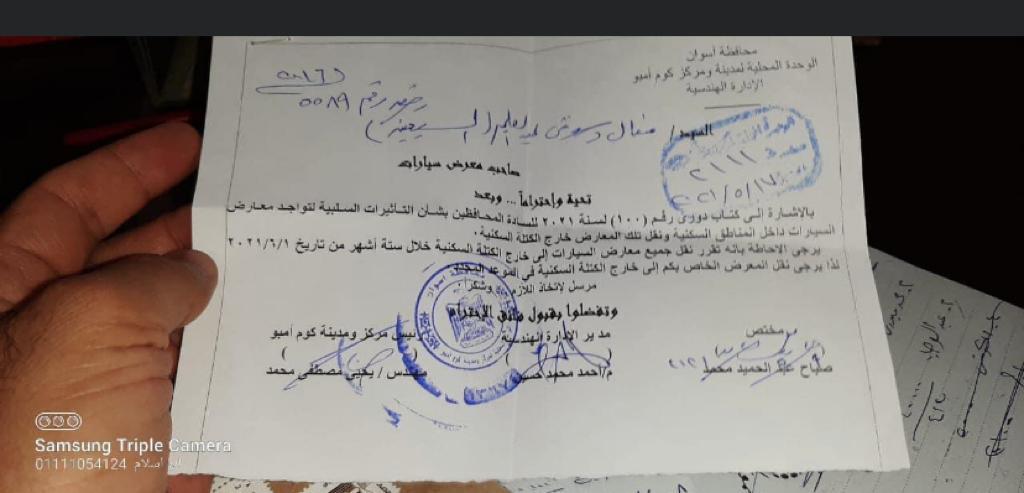 محافظة أسوان
الوحدة المحلية لمدينة ومركز كوم أمبو
الإدارة الهندسية
رقم ٥٥٨٩
السيد/ منال
صاحب معرض سيارات
تحية وإحتراماً ... وبعد
بالإشارة إلى كتاب دورى رقم (١٠٠) لسنة ٢٠٢١ للسادة المحافظين بشأن التأثيرات السلبية لتواجد معارض
السيارات داخل المناطق السكنية ونقل تلك المعارض خارج الكتلة السكنية .
يرجى الاحاطة بانه تقرر نقل جميع معارض السيارات إلى خارج الكتلة السكنية خلال ستة أشهر من تاريخ ٢٠٢١/٦/١
لذا يرجى نقل المعرض الخاص بكم إلى خارج الكتلة السكنية في الموعد
مرسل لإتخاذ اللازم وشكرا
وتفضلوا بقبول فائق الإحترام
مختص
مدير الادارة الهندسية
رئيس مركز ومدينة كوم أمبو
صباح عبد الحميد محمد
م/أحمد محمد حسين
مهندس / يحيى مصطفى محمد
٢١١١
٢٠٢١/٥/١٧
Samsung Triple Camera
01111054124